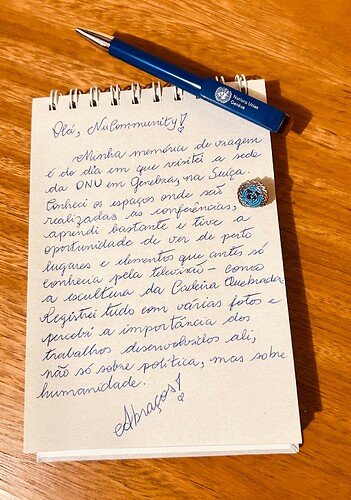 Nations Unies
Genève
Olá, NuCommunity!
Minha memória de viagem
é do dia em que visitei a sede
da ONU em Genebra, na Suíça.
Conheci os espaços onde são
realizadas as conferências,
aprendi bastante e tive a
oportunidade de ver de perto
lugares e elementos que antes só
conhecia pela televisão – como
a escultura da Cadeira Quebrada.
Registrei tudo com várias fotos e
percebi a importância dos
trabalhos desenvolvidos ali,
não só sobre política, mas sobre
humanidade.
Abraços!